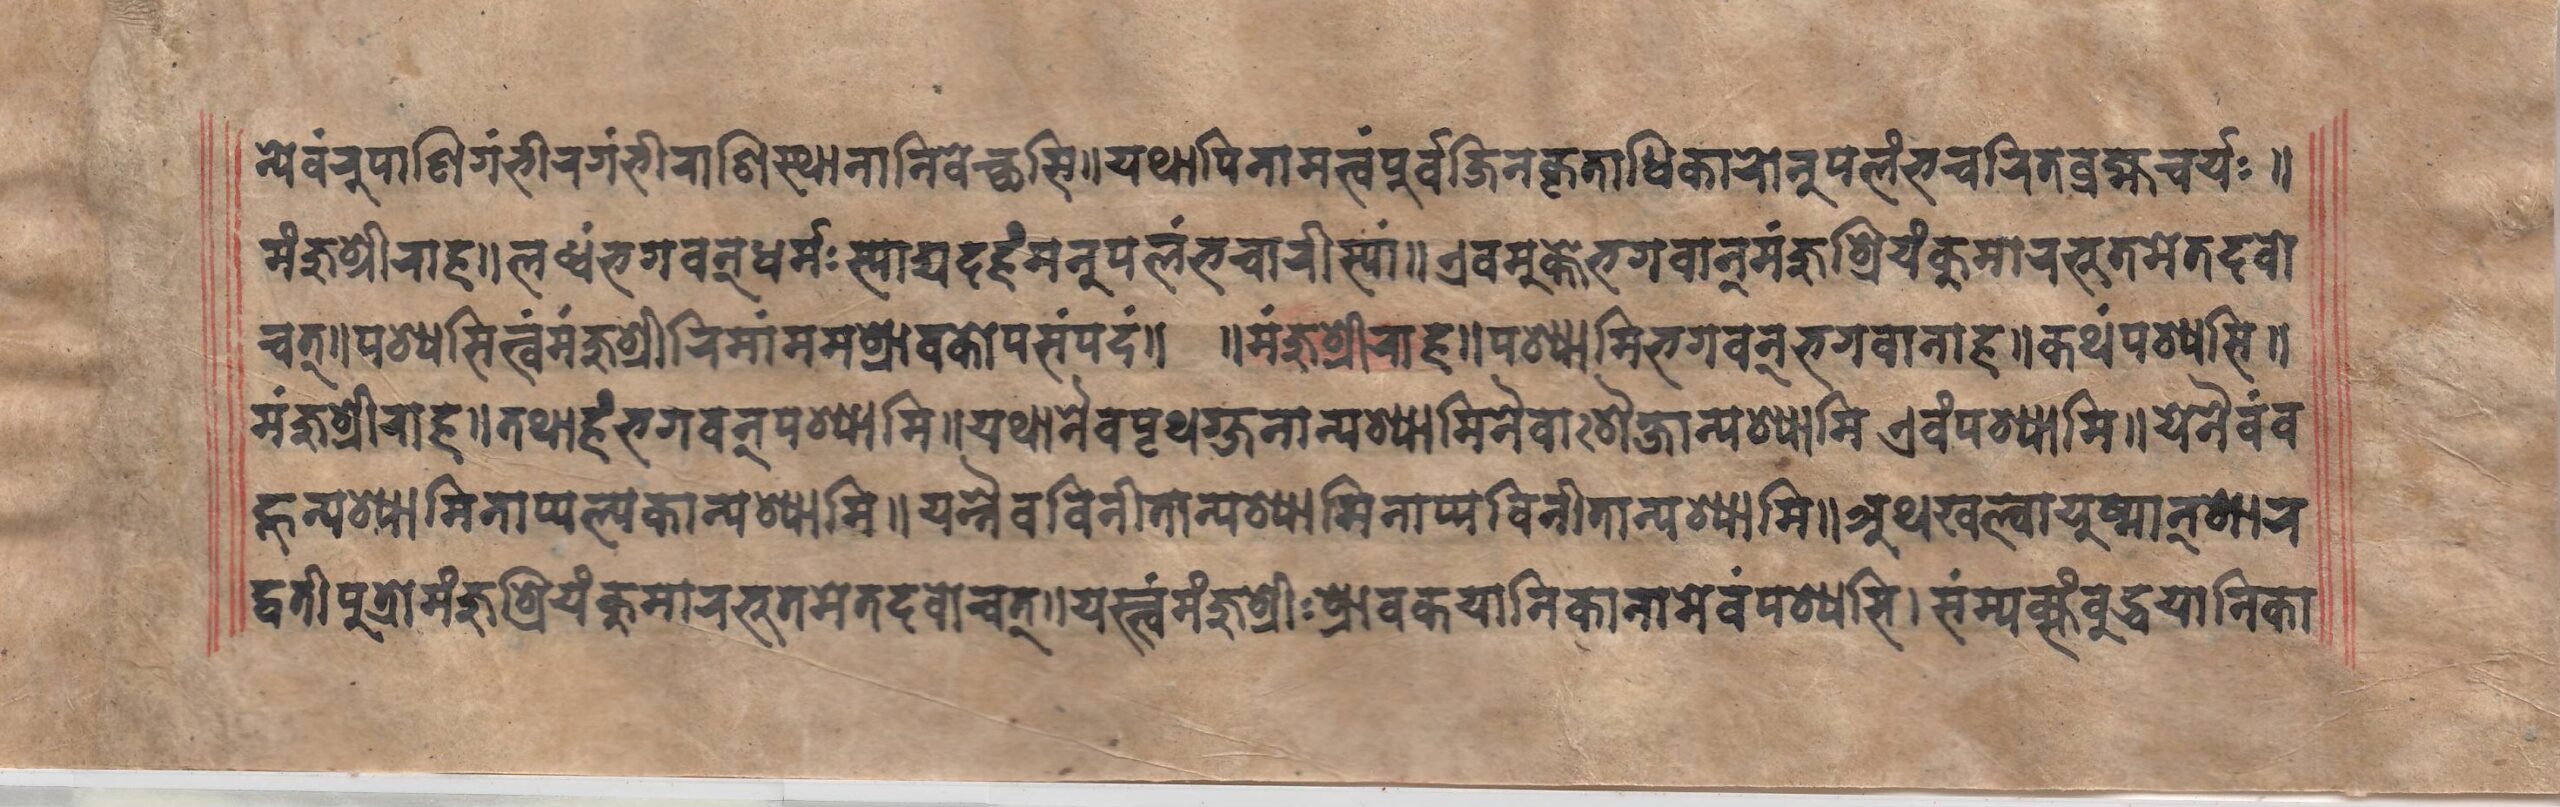 न्येवंरुपाणिगंभीरगंभीराणिस्थानानिवेच्छसि॥यथापिनामत्वंपुर्वजिनकृताधिकारोनुपलंभचरितब्रह्मचर्यः॥
मंजुश्रीराह॥लब्धंभगवन्धर्मःस्पाद्यदहंमनुपलंभचारीस्पां॥एवमुक्तेभगवान्मंजुश्रियंकुमारभुतमेतदवो
चत्॥पश्यसित्वंमंजुश्रीरिमांममश्रावकोपसंपदं॥ ॥मंजुश्रीराह॥पश्यामिभगवन्भगवानाह॥कथंपश्यसि॥
मंजुश्रीराह॥तथाहंभगवन्पश्यामि॥यथानैवपृथग्जनान्पश्यामिनैवाःशैक्षान्पश्यामिएवंपश्यामि॥येनैवंव
हून्पश्यामिनाप्यल्पकान्पश्यामि॥यन्नैवविनीतान्पश्यामिनाप्यविनीतान्पश्यामि॥अथखल्वायुष्मान्शार
द्वतीपुत्रोमंजुश्रियंकुमारभुतमेतदवोचत्॥यस्त्वंमंजुश्रीःश्रावकयानिकानामेवंपश्यसि।संम्यक्संबुद्धयानिका